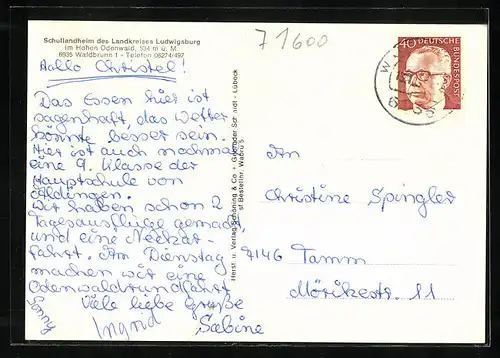 Schullandheim des Landkreises Ludwigsburg
im Hohen Odenwald, 534 m ü. M.
6935 Waldbrunn 1 - Telefon 06274/497
71600
Hallo Christel!
Das Essen hier ist
sagenhaft, das Wetter
könnte besser sein.
Hier ist auch nochmal
eine 9. Klasse der
Hauptschule von
Aldingen.
Wir haben schon 2
Tagesausflüge gemacht
und eine Neckar-
fahrt. Am Dienstag
machen wir eine
Odenwaldrundfahrt
Viele liebe Grüße
Ingrid Sabine
Herst. u. Verlag Schöning & Co · Gebrüder Schmidt · Lübeck
Bestellnr.
40 DEUTSCHE BUNDESPOST
An
Christine Spingler
7146 Tamm
Mörikestr. 11